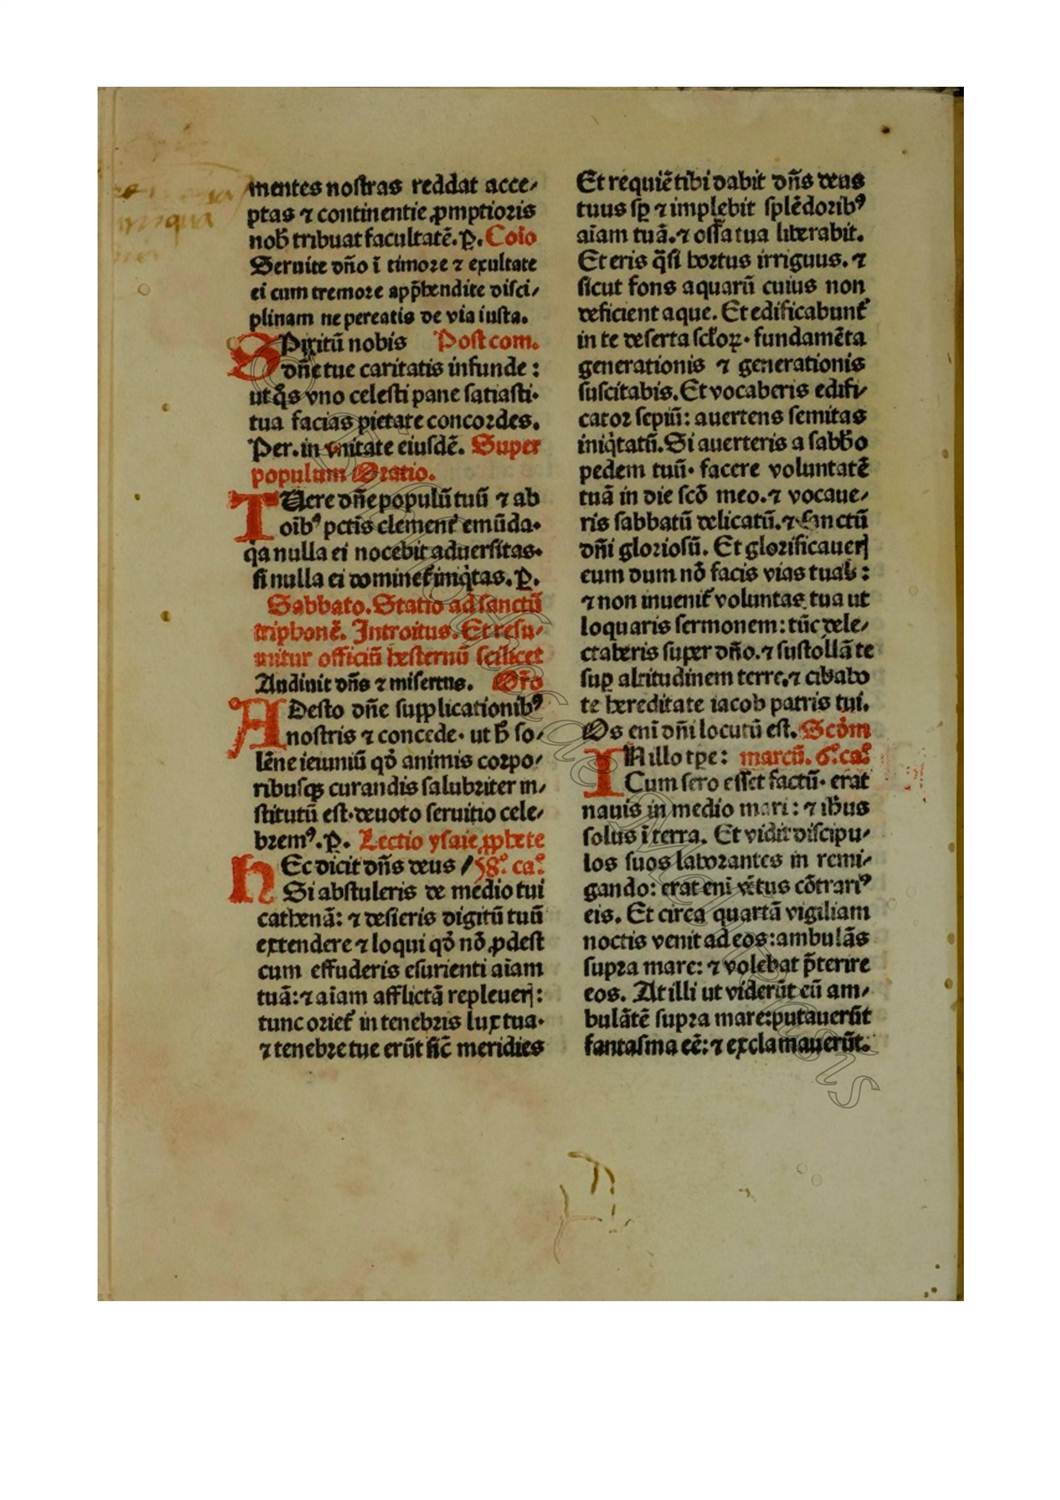 mentes nostras reddat acce⸗
ptas ⁊ continentie ꝓmptioris
nob̄ tribuat facultatē. P̲. Coīo
Seruite dn̄o ī timore ⁊ exultate
ei cum tremore app̄hendite disci⸗
plinam ne pereatis de via iusta.
SPiritū nobis Post com.
dn̄e tue caritatis infunde :
ut q̄s vno celesti pane satiasti.
tua facias pietate concordes.
Per. in vnitate eiusdē. Super
populum Oratio.
TUere dn̄e populū tuū ⁊ ab
oib⁹ pctīs clement᷑ emūda.
qa nulla ei nocebit aduersitas.
si nulla ei dominet᷑ iniq̇tas. P̲.
Sabbato. Statio ad sanctū
triphonē. Introitus. Et resu⸗
mitur officiū hesternū scilicet
Audiuit dn̄s ⁊ misertus. Or̄o
ADesto dn̄e supplicationib⁹
nostris ⁊ concede. ut h̄ so⸗
lēne ieiuniū qd̄ animis corpo⸗
ribusqꝫ curandis salubriter in⸗
stitutū est. deuoto seruitio cele⸗
brem⁹. P̲. Lectio ysaie ꝓphete
HEc dicit dn̄s deus / 58.° ca.°
Si abstuleris de medio tui
cathenā: ⁊ desieris digitū tuū
extendere ⁊ loqui qd̄ nō ꝓdest
cum effuderis esurienti aīam
tuā: ⁊ aīam afflictā repleuerꝭ:
tunc oriet᷑ in tenebris lux tua.
⁊ tenebre tue erūt sic̄ meridies
Et requiē tibi dabit dn̄s deus
tuus sp̄ ⁊ implebit splēdorib⁹
aīam tuā. ⁊ ossa tua liberabit.
Et eris q̄si hortus irriguus. ⁊
sicut fons aquarū cuius non
deficient aque. Et edificabunt᷑
in te deserta scłoꝝ. fundamēta
generationis ⁊ generationis
suscitabis. Et vocaberis edifi⸗
cator sepiū: auertens semitas
iniq̇tatū. Si auerteris a sabb̄o
pedem tuū. facere voluntatē
tuā in die scō meo. ⁊ vocaue⸗
ris sabbatū delicatū. ⁊ sanctū
dn̄i gloriosū. Et glorificauerꝭ
eum dum nō facis vias tuas :
⁊ non inuenit᷑ voluntas tua ut
loquaris sermonem: tūc dele⸗
ctaberis super dn̄o. ⁊ sustollā te
sup̱ altitudinem terre. ⁊ cibabo
te hereditate iacob patris tui.
Os eni᷑ dn̄i locutū est. Scd̄m
IN illo tp̄e: marcū. 6.° ca.°
Cum sero esset factū. erat
nauis in medio mari : ⁊ ih̄us
solus ī terra. Et vidit discipu⸗
los suos laborantes in remi⸗
gando: erat eni᷑ vētus cōtrari⁹
eis. Et circa quartā vigiliam
noctis venit ad eos: ambulās
supra mare: ⁊ volebat p̄terire
eos. At illi ut viderūt eū am⸗
bulātē supra mare: putauerūt
fantasma eē: ⁊ exclamauerūt.